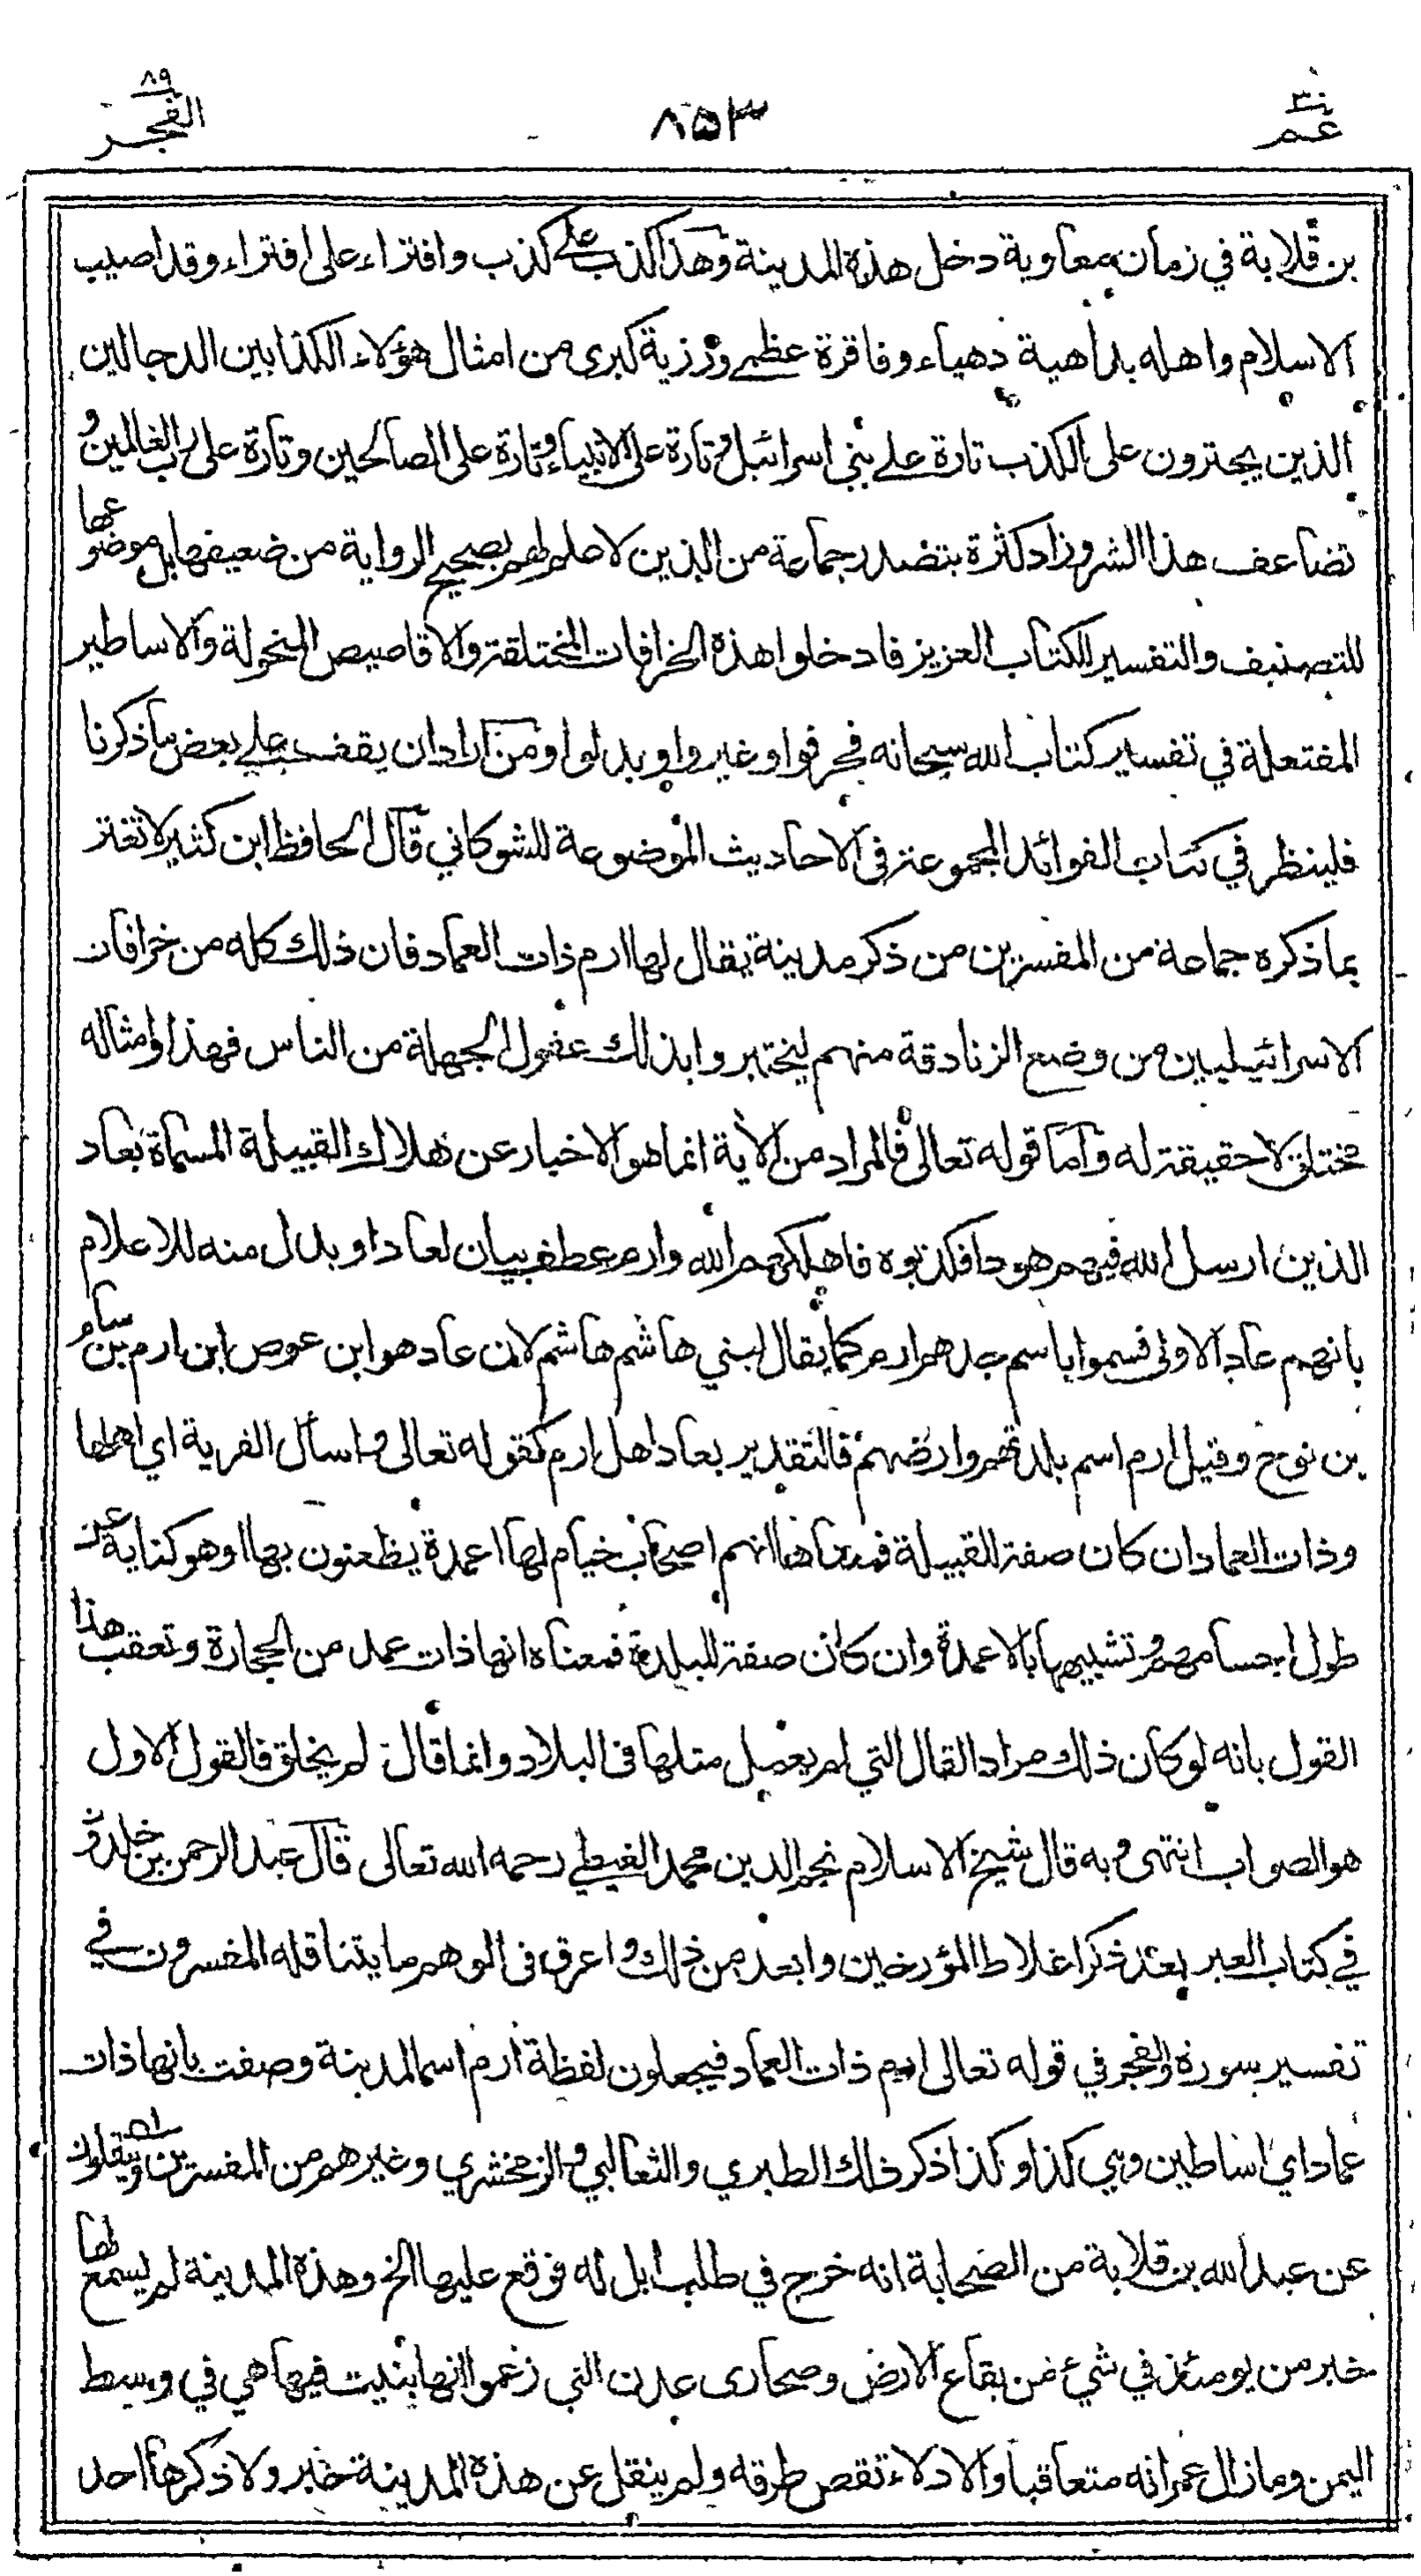 ٣٠
عم
٨٥٣
٨٩
الفجر
بن قلابة في زمان معاوية دخل هذه المدينة وهذا كذب على كذب وافتراء على افتراء وقد اصيب
الاسلام واهله بداهية دهياء وفاقرة عظمى ورزية كبرى من امثال هؤلاء الكذابين الدجالين
الذين يجترون على الكذب تارة على بني اسرائيل وتارة على الانبياء وتارة على الصالحين وتارة على رب العالمين و
تضاعف هذا الشر وزاد كثرة بتصدر جماعة من الذين لا علم لهم بصحيح الرواية من ضعيفها بل موضوعها
للتصنيف والتفسير للكتاب العزيز فادخلوا هذه الخرافات المختلقة والاقاصيص المنحولة والاساطير
المفتعلة في تفسير كتاب الله سبحانه فحرفوا وغيروا وبدلوا ومن اراد ان يقف على بعض ما ذكرنا
فلينظر في كتاب الفوائد المجموعة في الاحاديث الموضوعة للشوكاني قال الحافظ ابن كثير لا تغتر
بما ذكره جماعة من المفسرين من ذكر مدينة يقال لها ارم ذات العماد فان ذلك كله من خرافات
الاسرائيليين من وضع الزنادقة منهم ليختبروا بذلك عقول الجهلة من الناس فهذا وامثاله
مختلق لا حقيقة له واما قوله تعالى فالمراد من الأية انما هو الاخبار عن هلاك القبيلة المسماة بعاد
الذين ارسل الله فيهم هودا فكذبوه فاهلكهم الله وارم عطف بيان لعاد او بدل منه للاعلام
بانهم عاد الاولى فسموا باسم جدهم ارم كما يقال لبني هاشم هاشم لان عاد هو ابن عوص ابن ارم بن سام
بن نوح وقيل ارم اسم بلدتهم وارضهم فالتقدير بعاد اهل ارم كقوله تعالى واسأل القرية اي اهلها
وذات العماد ان كان صفة للقبيلة فمعناها انهم اصحاب خيام لها اعمدة يظعنون بها او هو كناية عن
طول اجسامهم وتشبيهها بالاعمدة وان كان صفة للبلدة فمعناه انها ذات عمد من الحجارة وتعقب هذا
القول بانه لو كان ذلك مرادا لقال التي لم يعمل مثلها في البلاد وانما قال لم يخلق فالقول الاول
هو الصواب انتهى وبه قال شيخ الاسلام نجم الدين محمد الغيطي رحمه الله تعالى قال عبد الرحمن بن خلدون
في كتاب العبر بعد ذكر اغلاط المؤرخين وابعد من ذلك واعرق في الوهم ما يتناقله المفسرون في
تفسير سورة والفجر في قوله تعالى ارم ذات العماد فيجعلون لفظة ارم اسما لمدينة وصفت بانها ذات
عماد اي اساطين وهي كذا وكذا ذكر ذلك الطبري والثعالبي والزمخشري وغيرهم من المفسرين وينقلون
عن عبد الله بن قلابة من الصحابة انه خرج في طلب ابل له فوقع عليها الخ وهذه المدينة لم يسمع لها
خبر من يومئذ في شيء من بقاع الارض وصحارى عدن التي زعموا انها بنيت فيها هي في وسط
اليمن وما زال عمرانه متعاقبا والادلاء تقص طرقه ولم ينقل عن هذه المدينة خبر ولا ذكرها احد